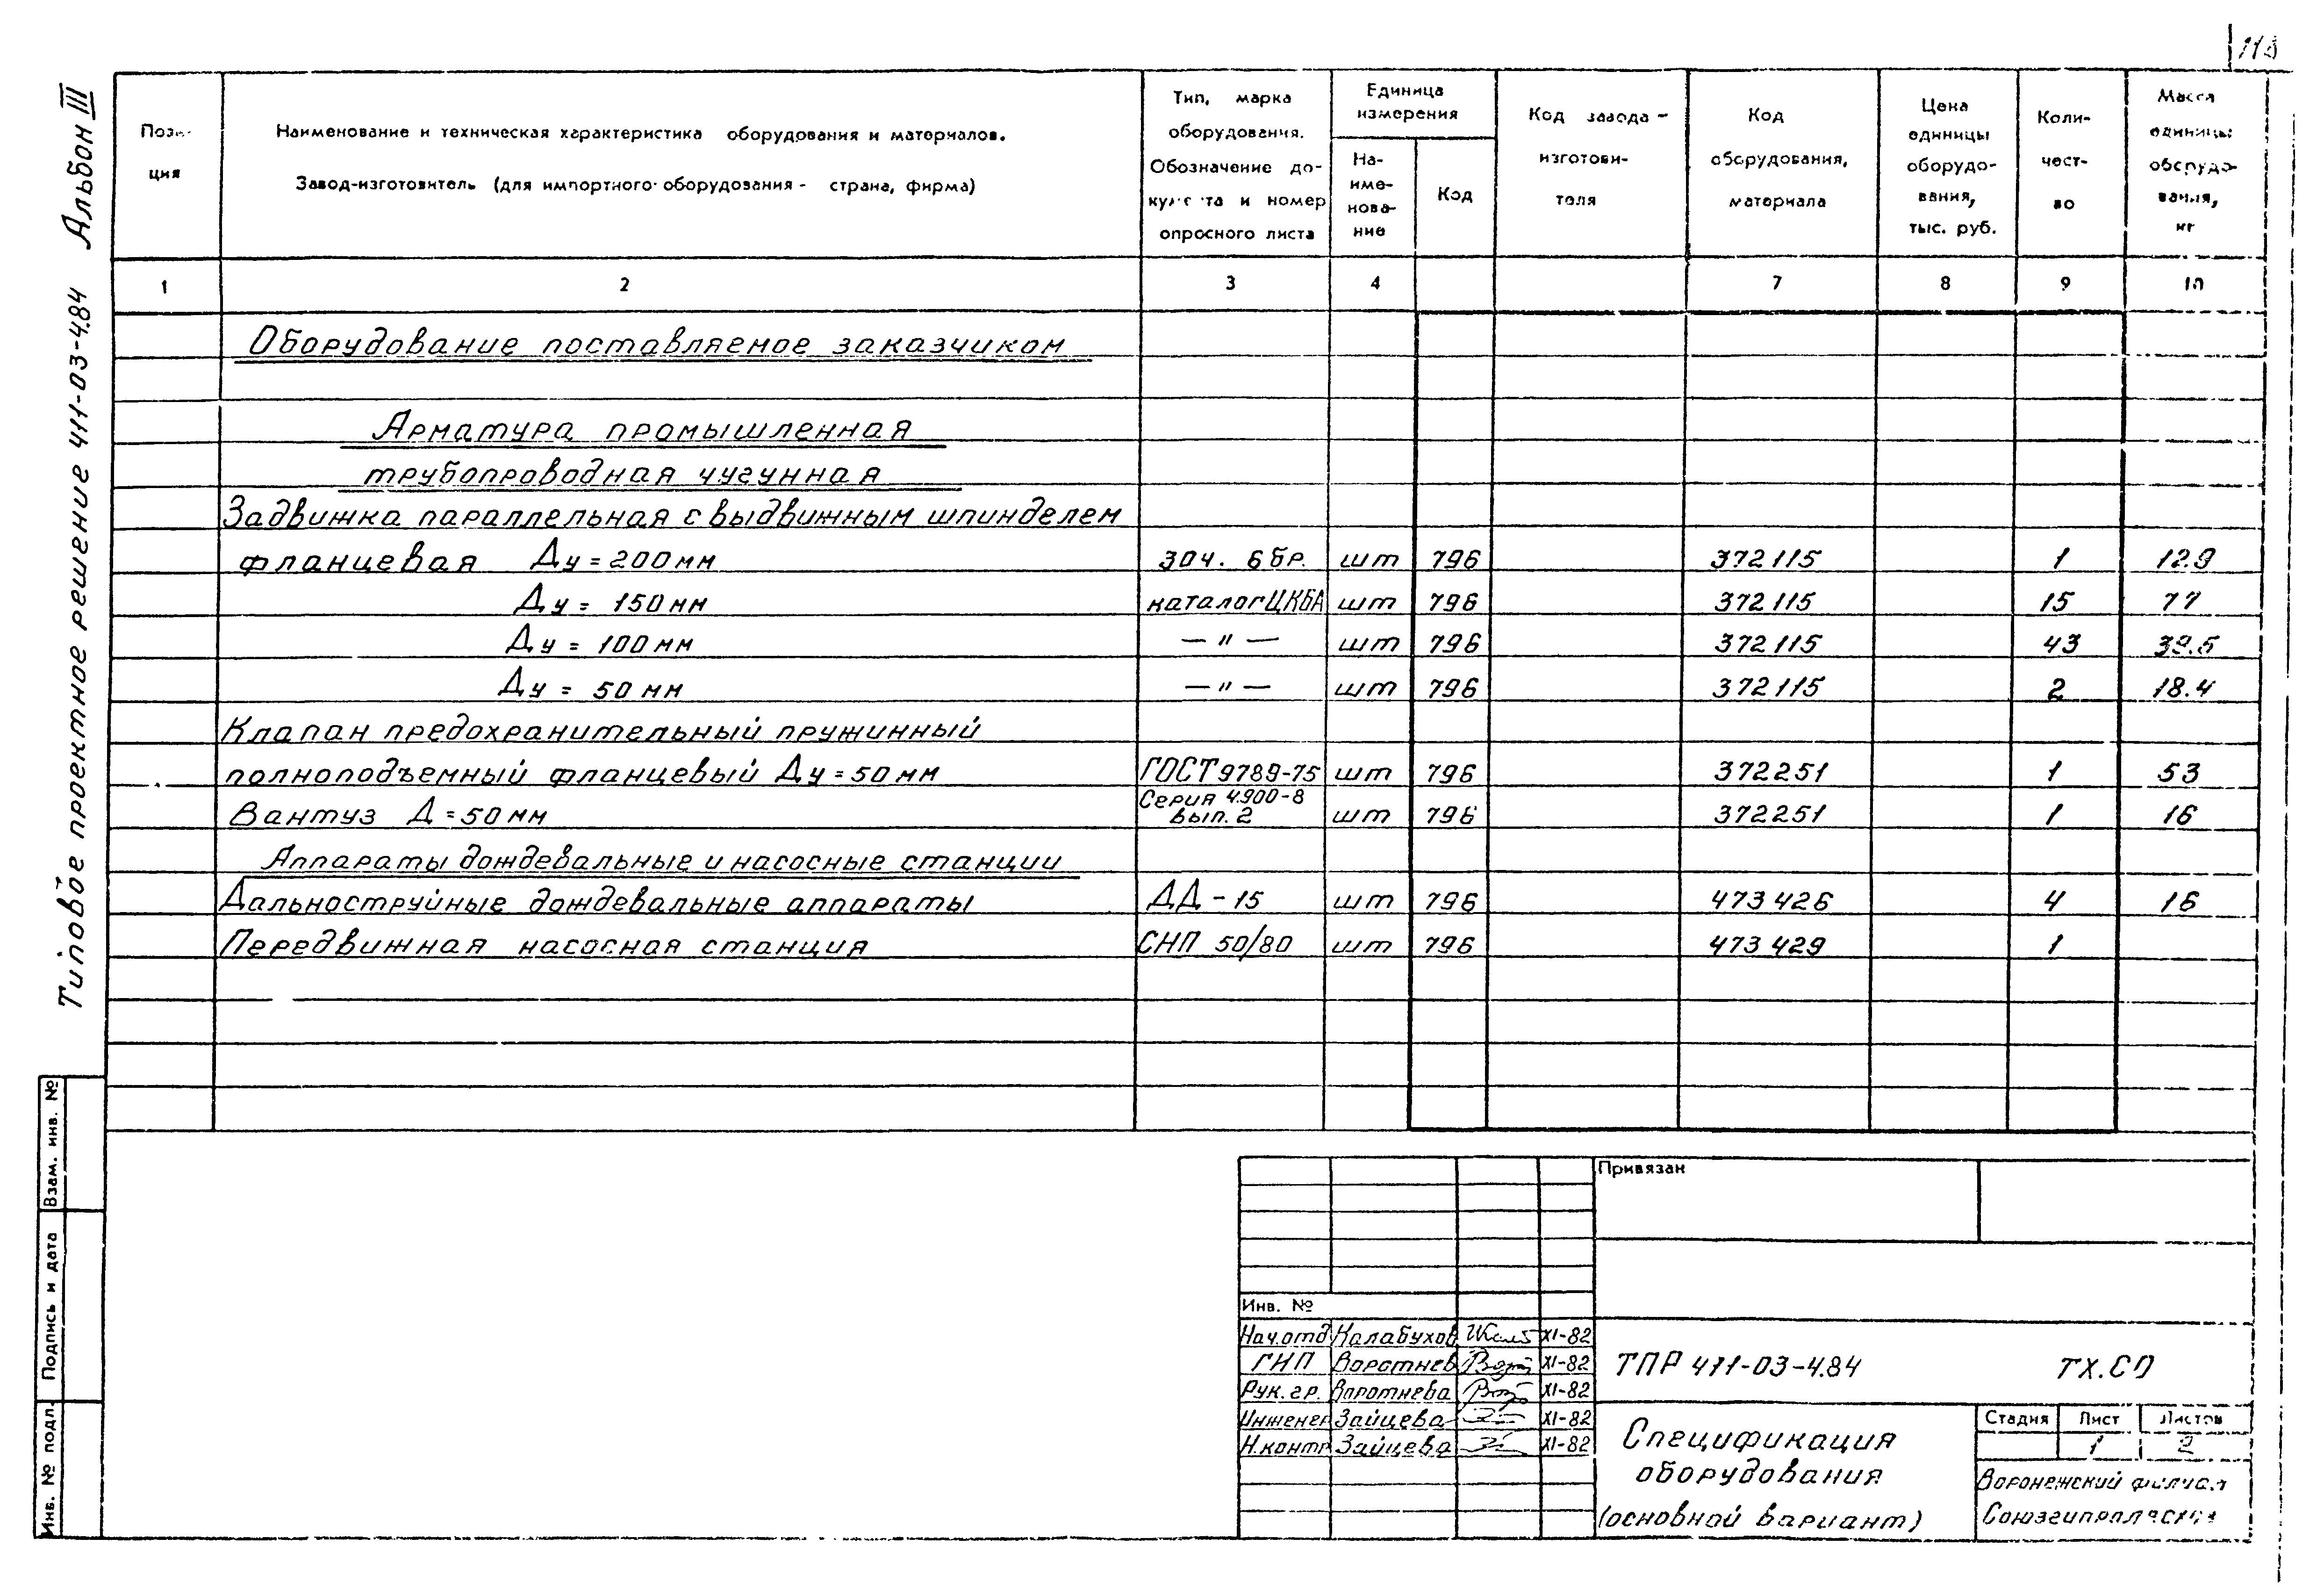 118
Альбом III
Типовое проектное решение 411-03-4.84
Пози-
ция
Наименование и техническая характеристика оборудования и материалов.
Завод-изготовитель (для импортного оборудования - страна, фирма)
Тип, марка
оборудования.
Обозначение до-
кумента и номер
опросного листа
Единица
измерения
На-
име-
нова-
ние
Код
Код завода -
изготови-
теля
Код
оборудования,
материала
Цена
единицы
оборудо-
вания,
тыс. руб.
Коли-
чест-
во
Масса
единицы
оборудо-
вания,
кг
1 2 3 4 7 8 9 10
Оборудование поставляемое заказчиком
Арматура промышленная
трубопроводная чугунная
Задвижка параллельная с выдвижным шпинделем
фланцевая Ду = 200 мм 30ч. 6 бр. шт 796 372115 1 129
Ду = 150 мм каталог ЦКБА шт 796 372115 15 77
Ду = 100 мм — " — шт 796 372115 43 39.5
Ду = 50 мм — " — шт 796 372115 2 18.4
Клапан предохранительный пружинный
полноподъемный фланцевый Ду = 50 мм ГОСТ 9789-75 шт 796 372251 1 53
Вантуз Д = 50 мм Серия 4.900-8 вып. 2 шт 796 372251 1 16
Аппараты дождевальные и насосные станции
Дальноструйные дождевальные аппараты ДД - 15 шт 796 473426 4 16
Передвижная насосная станция СНП 50/80 шт 796 473429 1
Взам. инв. №
Подпись и дата
Инв. № подл.
Привязан
Инв. №
Нач.отд Калабухов XI-82
ГИП Воротнев XI-82
Рук. гр. Воротнева XI-82
Инженер Зайцева XI-82
Н.контр Зайцева XI-82
ТПР 411-03-4.84 ТХ.СО
Спецификация
оборудования
(основной вариант)
Стадия Лист Листов
1 2
Воронежский филиал
Союзгипролесхоз